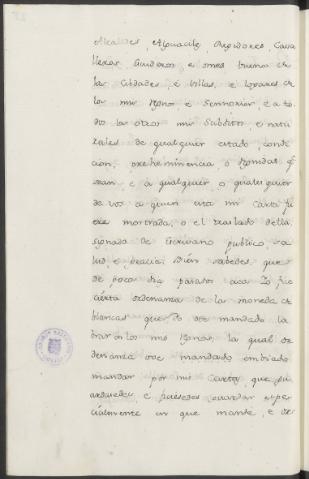 Alcaldes, Alguacils, Regidores, Cava
lleros Escuderos, e omes buenos de
las Cibdades, é Villas, e logares de
los mis Reynos é Sennorios, é a to
dos los otros mis Subditos, é natu
rales de qualquier estado, condi
cion, prehеminencia, o dignidat q.
sean, e a qualquier o qualesquier
de vos a quien esta mi Carta fu
ere mostrada, o el traslado della
signado de Escrivano publico, sa
lud, é gracia: Bien sabedes, que
de poco dias pasados acá Yo fise
cierta ordenanza de la moneda de
blancas que Yo he mandado la
brar en los mis Reynos, la qual or
denanza ove mandado embiado
mandar por mis Cartas que gu
ardasedes, é fisiesedes guardar espe
cialmente en que mande, e de